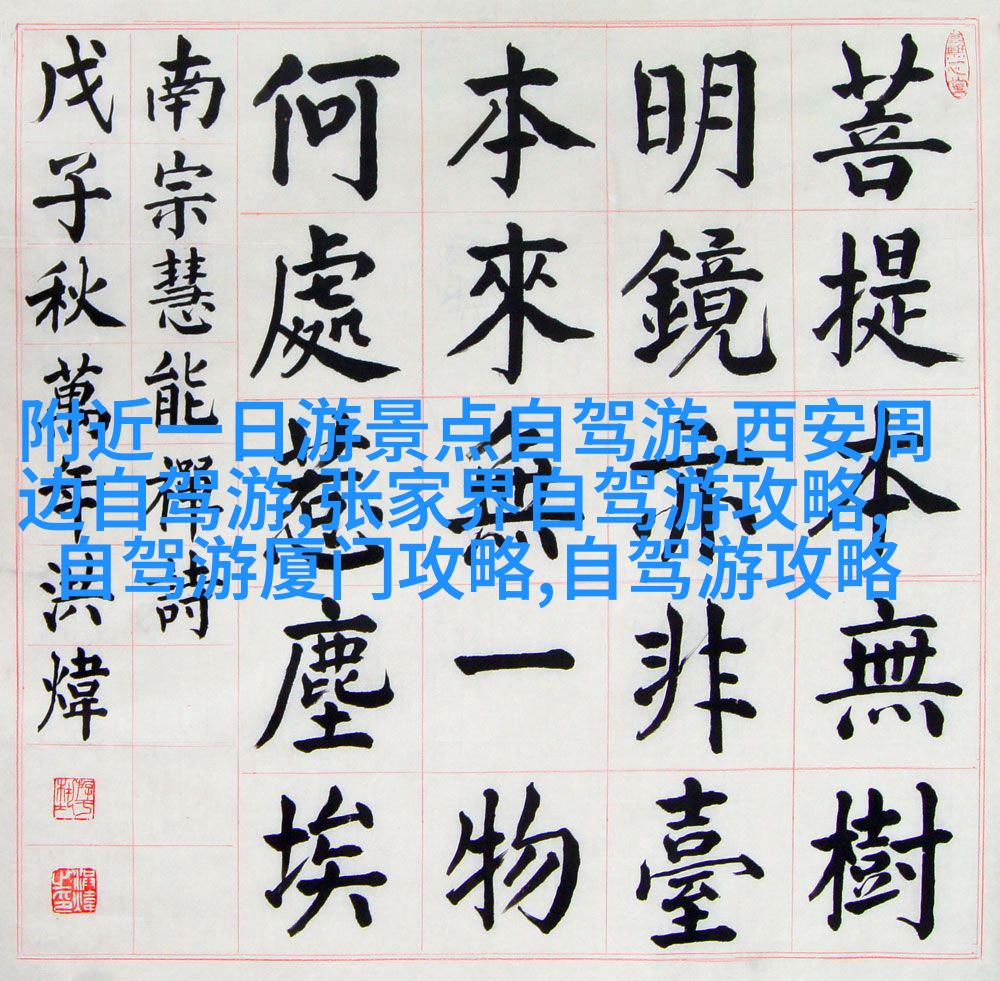 菩提本無樹
明鏡亦非臺
本來無一物
何處惹塵埃
南宗慧能禪詩
戊子秋萬年洪煒
附近一日游景点自驾游,西安周
边自驾游,张家界自驾游攻略,
自驾游厦门攻略,自驾游攻略